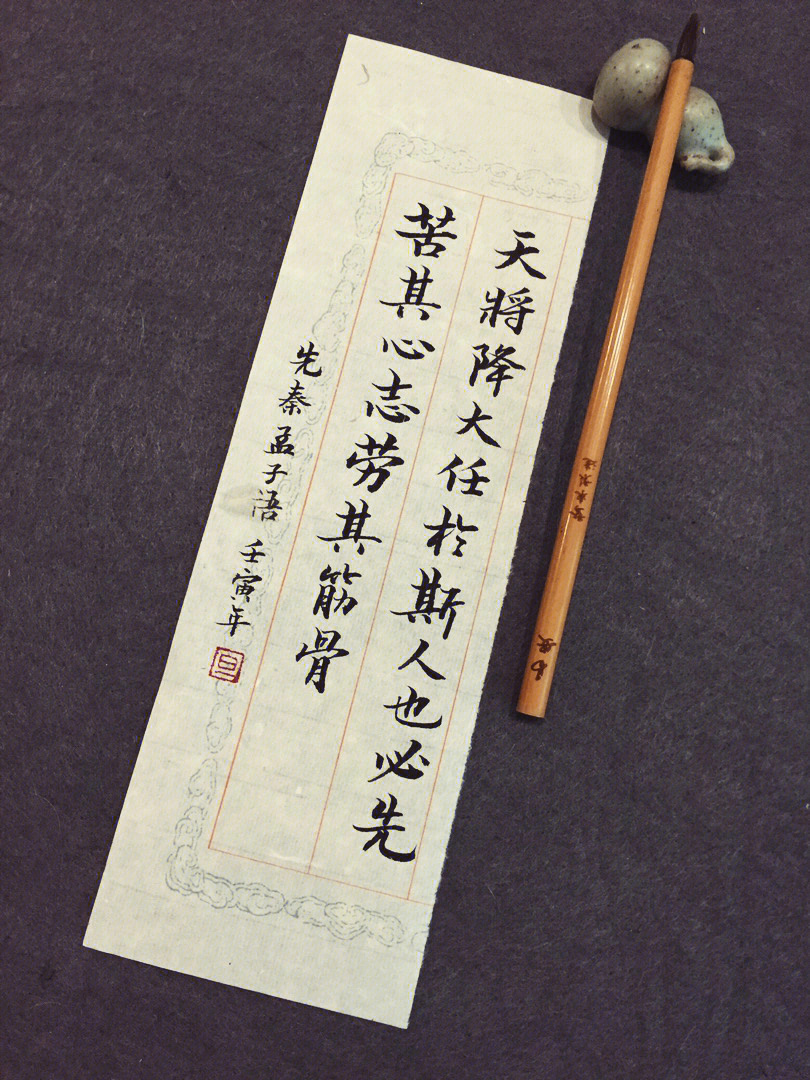 天將降大任於斯人也必先
苦其心志劳其筋骨
先秦孟子语 壬寅年